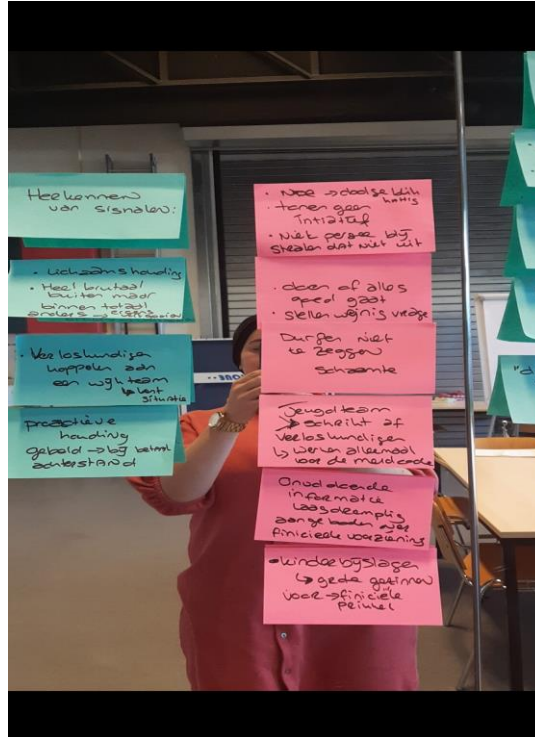 Herkennen
van signalen:
• Lichaamshouding
• Heel brutaal
buiten maar
binnen totaal
anders →
• Verloskundigen
koppelen aan
een wijkteam
↳ kent
situatie
proactieve
houding
gebald → bij betaal
achterstand
• NOE →
• tonen geen
intiatief
• Niet perse bij
stralen dat niet uit
• doen of alles
goed gaat
• stellen weinig vrage
Durfen niet
te zeggen
schaamte
Jeugdteam
→ schrikt af
verloskundigen
↳ werken allemaal
voor de meldcode
Onvoldoende
informatie
laagdremplig
aangeboden over
finicieele voorziening
• kinderbijslagen
↳ gezinnen
voor → finiciële
prikkel
"d